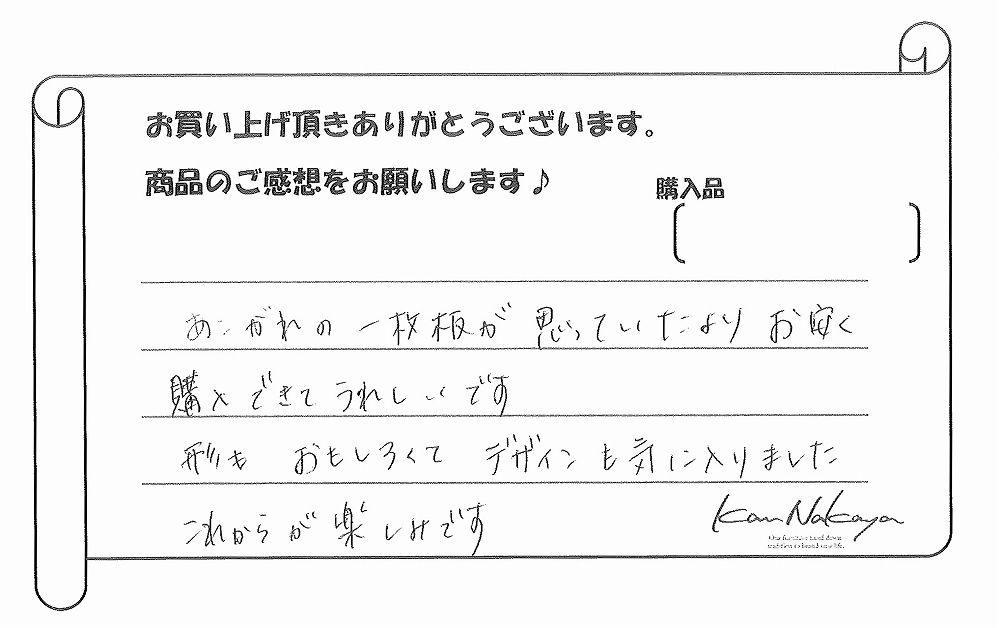 お買い上げ頂きありがとうございます。
商品のご感想をお願いします♪
購入品
あこがれの一枚板が思っていたよりお安く
購入できてうれしいです
形もおもしろくてデザインも気に入りました
これからが楽しみです
Kan Nakaya